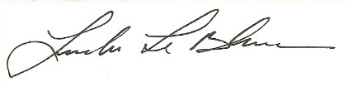 Linda Le Blanc